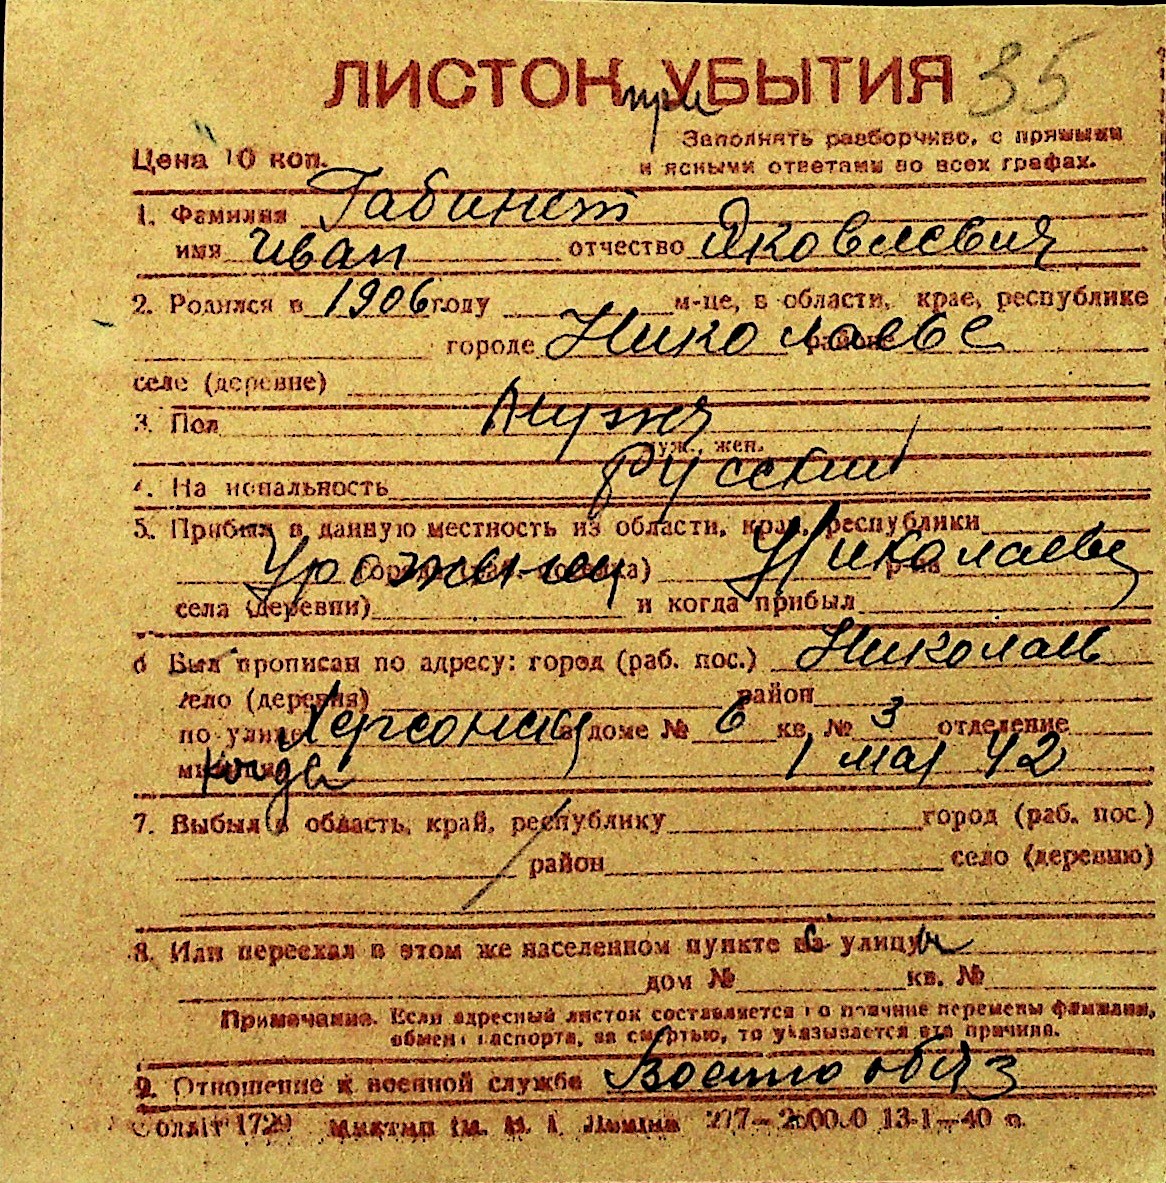 ЛИСТОК при УБЫТИЯ 35
Заполнять разборчиво, с прямыми
Цена 10 коп. и ясными ответами во всех графах.
1. Фамилия Габинет
имя Иван отчество Яковлевич
2. Родился в 1906 году м-це, в области, крае, республике
городе Николаеве районе
селе (деревне)
3. Пол Мужч
муж., жен.
4. Национальность русский
5. Прибыл в данную местность из области, края, республики
Урожынец Николаеве р-на
села (деревни) и когда прибыл
6 Был прописан по адресу: город (раб. пос.) Николаев
село (деревня) район
по улице Херсонская в доме № 6 кв. № 3 отделение
когда 1 мая 42
7. Выбыл в область, край, республику город (раб. пос.)
район село (деревню)
8. Или переехал в этом же населенном пункте с улицы
дом № кв. №
Примечание. Если адресный листок составляется по причине перемены фамилии,
обмена паспорта, за смертью, то указывается эта причина.
9. Отношение к военной службе Военнообяз
Облліт 1729 277—20000 13-1—40 г.